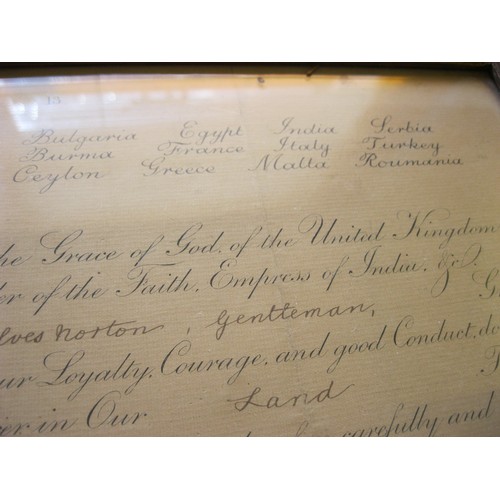 13
Bulgaria Egypt India Serbia
Burma France Italy Turkey
Ceylon Greece Malta Roumania
he Grace of God, of the United Kingdom
er of the Faith, Empress of India, &c.
lves Norton, Gentleman,
ur Loyalty, Courage, and good Conduct, do
er in Our Land
carefully and